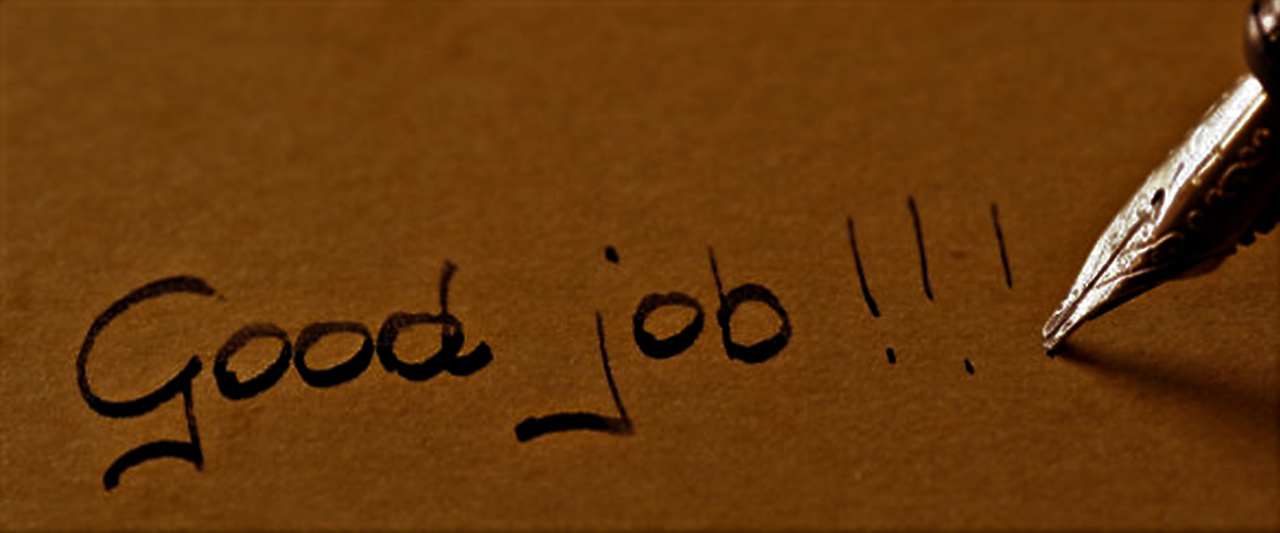 Good job !!!